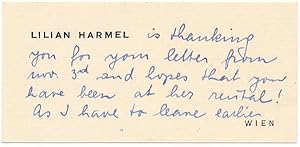 LILIAN HARMEL is thanking
you for your letter from
nov. 3rd and hopes that you
have been at her recital!
As I have to leave earlier
WIEN